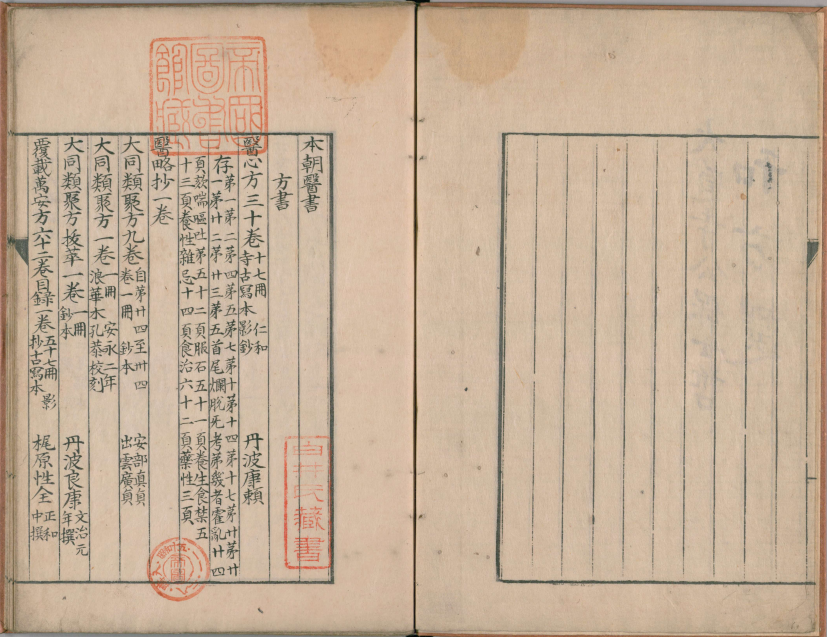 本朝醫書
方書
醫心方三十卷 十七冊 仁和
寺古寫本影鈔 丹波康頼
存 第一第二第四第五第七第十第十四第十七第廿第廿
一第廿二第廿三第五首尾爛脫无考第幾者霍亂廿四
頁欬喘嘔吐第五十二頁服石五十一頁養生食禁五
十三頁養性雜忌十四頁食治六十二頁藥性三頁
醫略抄一卷
大同類聚方九卷 自第廿四至卅四
卷一冊 鈔本 安部真貞
出雲廣貞
大同類聚方一卷 一冊 安永二年
浪華木孔恭校刻
大同類聚方拔萃一卷 一冊
鈔本 丹波良康 文治元
年撰
覆載萬安方六十二卷目錄一卷 五十七冊 影
抄古寫本 梶原性全 正和
中撰
帝國圖書館藏
白井氏藏書